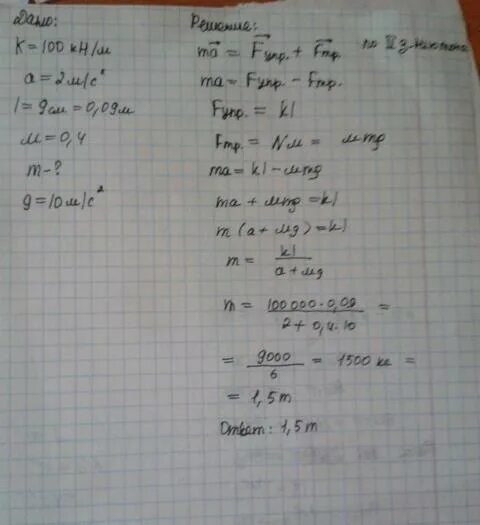 Дано:
K = 100 кН/м
a = 2 м/с²
l = 9 см = 0,09 м
м = 0,4
m - ?
g = 10 м/с²
Решение:
ma⃗ = F⃗упр. + F⃗тр. по II з. Ньютона
ma = Fупр. - Fтр.
Fупр. = kl
Fтр. = Nм = мmg
ma = kl - мmg
ma + мmg = kl
m (a + мg) = kl
m = kl / a + мg
m = 100 000 · 0,09 / 2 + 0,4 · 10 =
= 9000 / 6 = 1500 кг =
= 1,5 т
Ответ: 1,5 т